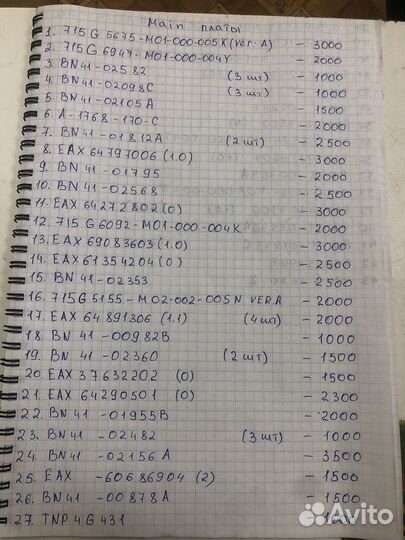 Main платы
1. 715G5675-M01-000-005K(ver.A) - 3000
2. 715G6947-M01-000-004Y - 2000
3. BN41-02582 (3 шт) - 1000
4. BN41-02098C (3 шт) - 1000
5. BN41-02105A - 1500
6. A-1768-170-C - 2000
7. BN41-01812A (2 шт) - 2500
8. EAX 64797006 (1.0) - 3000
9. BN41-01795 - 2000
10. BN41-02568 - 2500
11. EAX 64272802(0) - 3000
12. 715G6092-M01-000-004K - 2000
13. EAX 69083603(1.0) - 3000
14. EAX 61354204(0) - 2500
15. BN41-02353 - 2500
16. 715G5155-M02-002-005N VER.A - 2000
17. EAX 64891306 (1.1) (4 шт) - 2000
18. BN41-00982B - 1000
19. BN41-02360 (2 шт) - 1500
20. EAX 37632202 (0) - 1500
21. EAX 64290501 (0) - 2300
22. BN41-01955B - 2000
23. BN41-02482 (3 шт) - 1000
24. BN41-02156A - 3500
25. EAX-60686904 (2) - 1500
26. BN41-00878A - 1500
27. TNP4G431
Avito